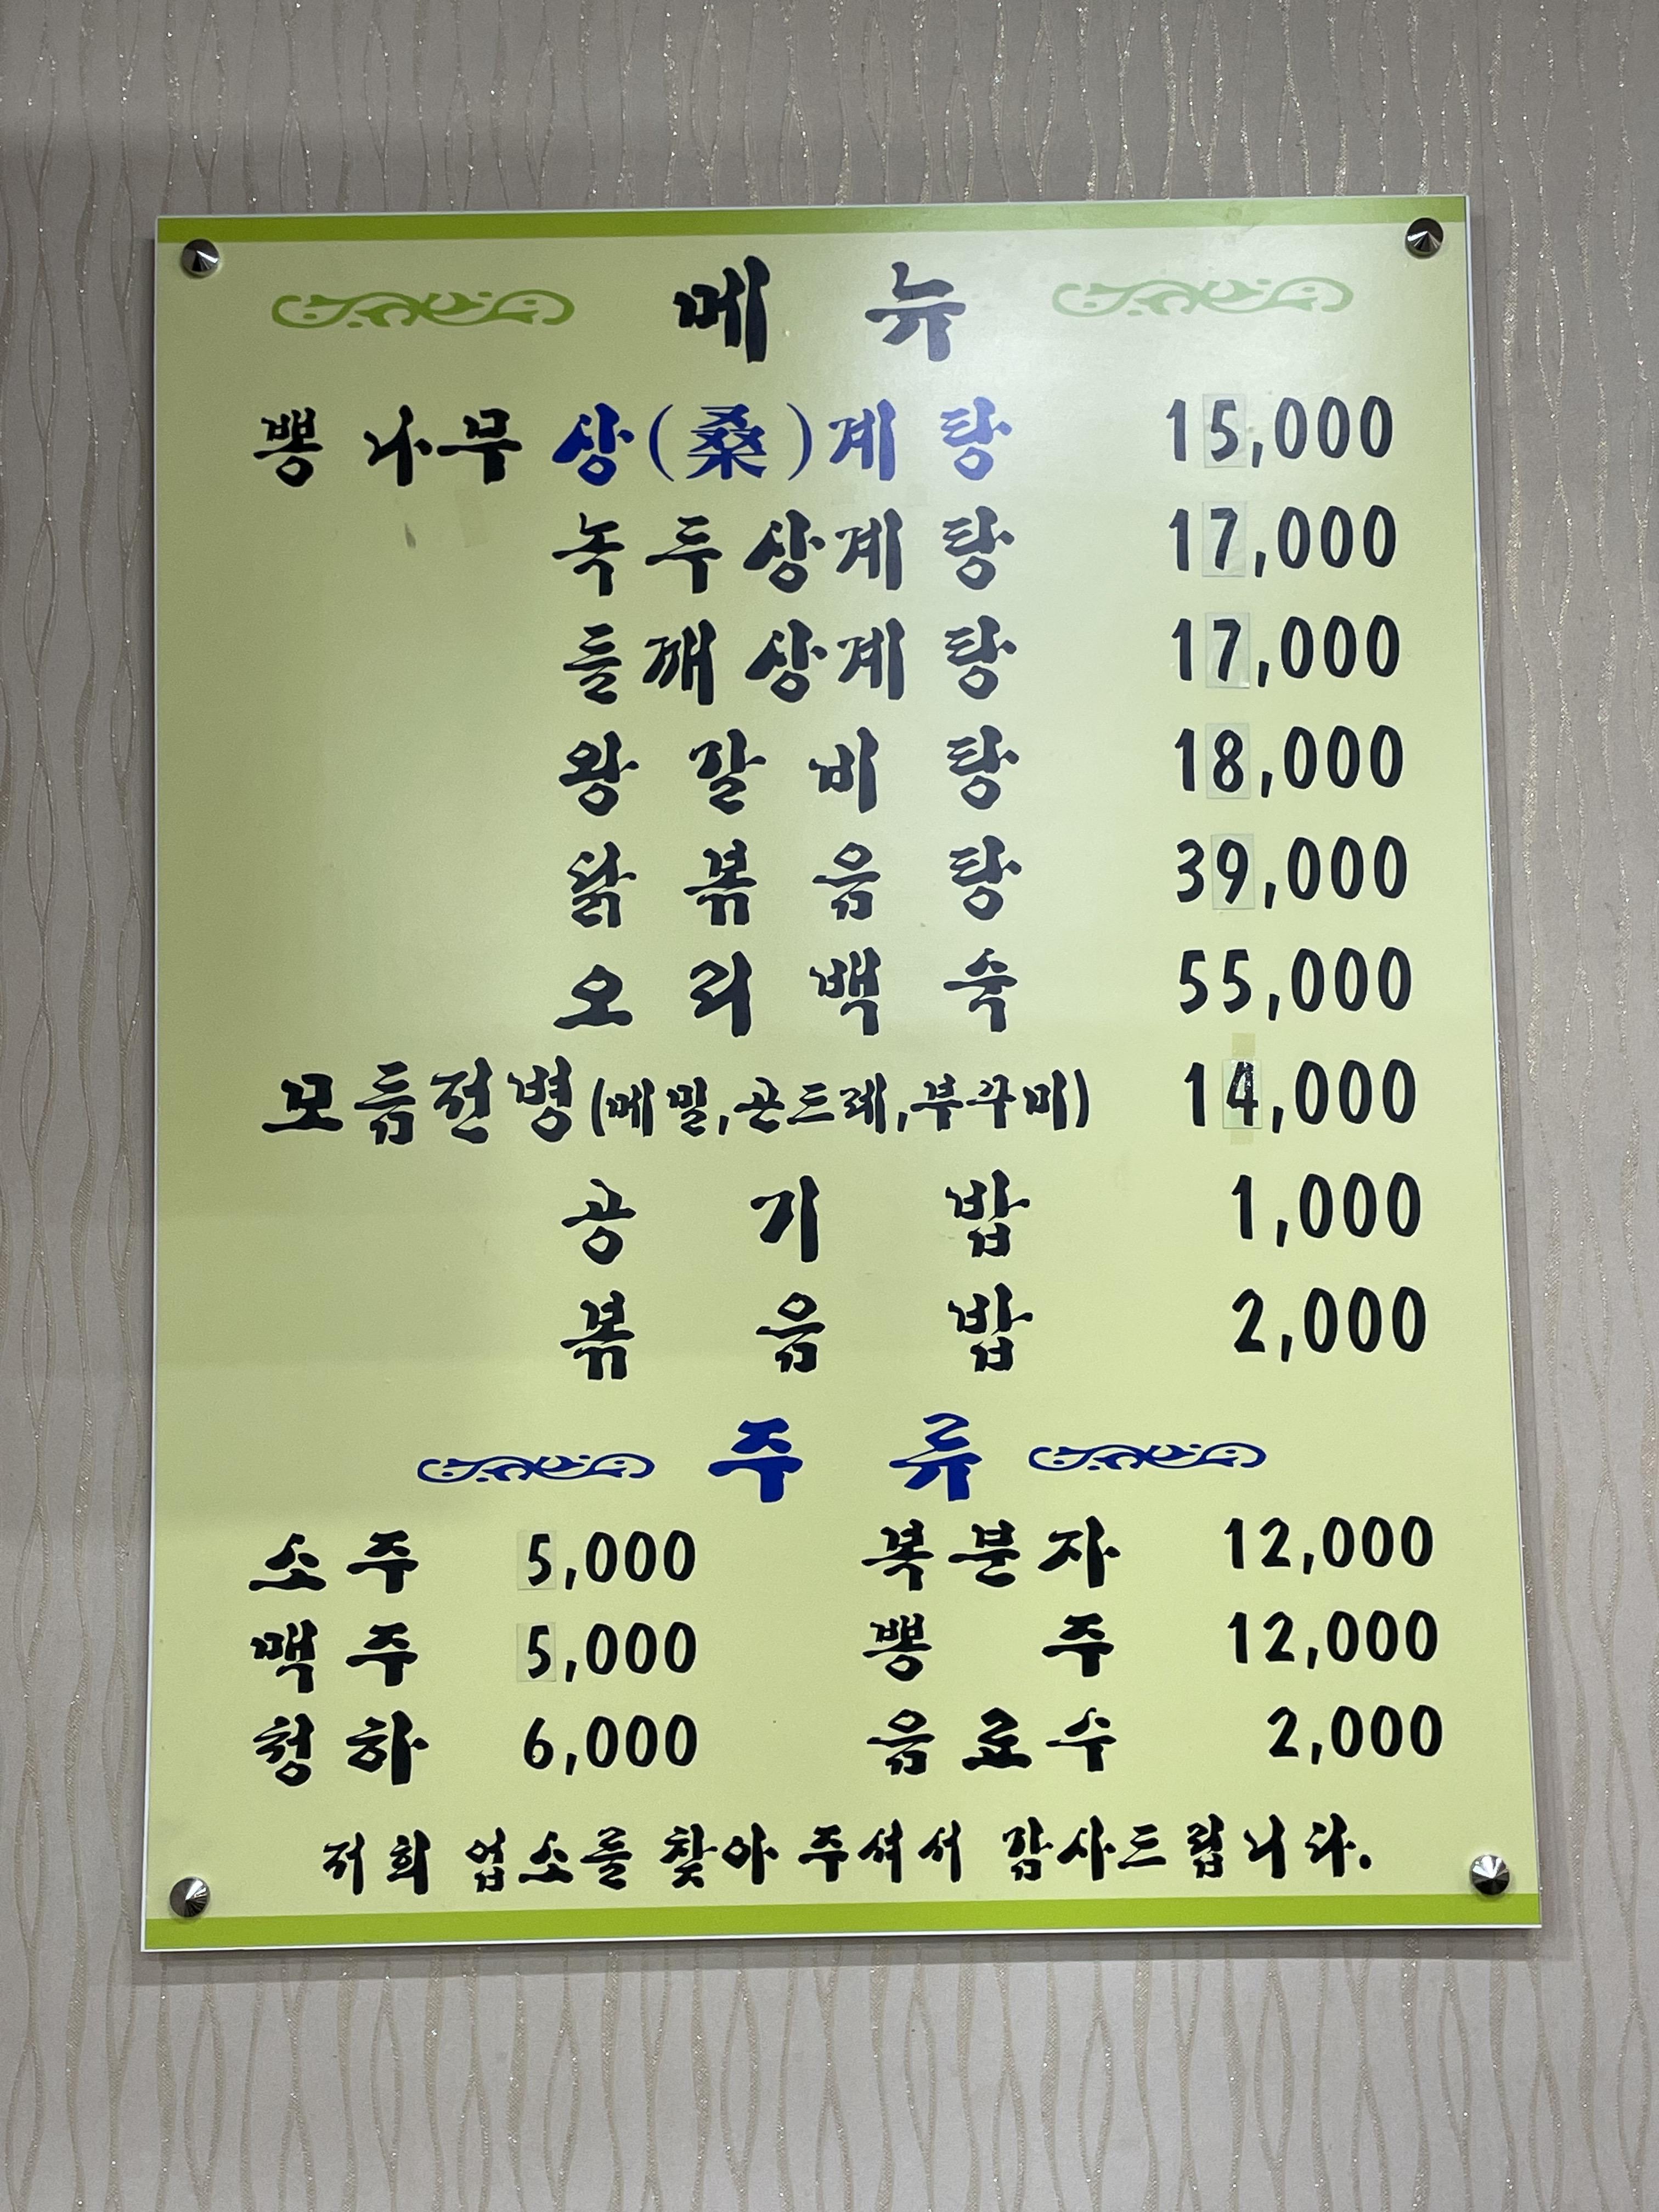 메뉴
뽕나무 상(桑)계탕 15,000
녹두상계탕 17,000
들깨상계탕 17,000
왕갈비탕 18,000
닭볶음탕 39,000
오리백숙 55,000
모듬전병(메밀,곤드레,부꾸미) 14,000
공기밥 1,000
볶음밥 2,000
주류
소주 5,000 복분자 12,000
맥주 5,000 뽕주 12,000
청하 6,000 음료수 2,000
저희 업소를 찾아 주셔서 감사드립니다.